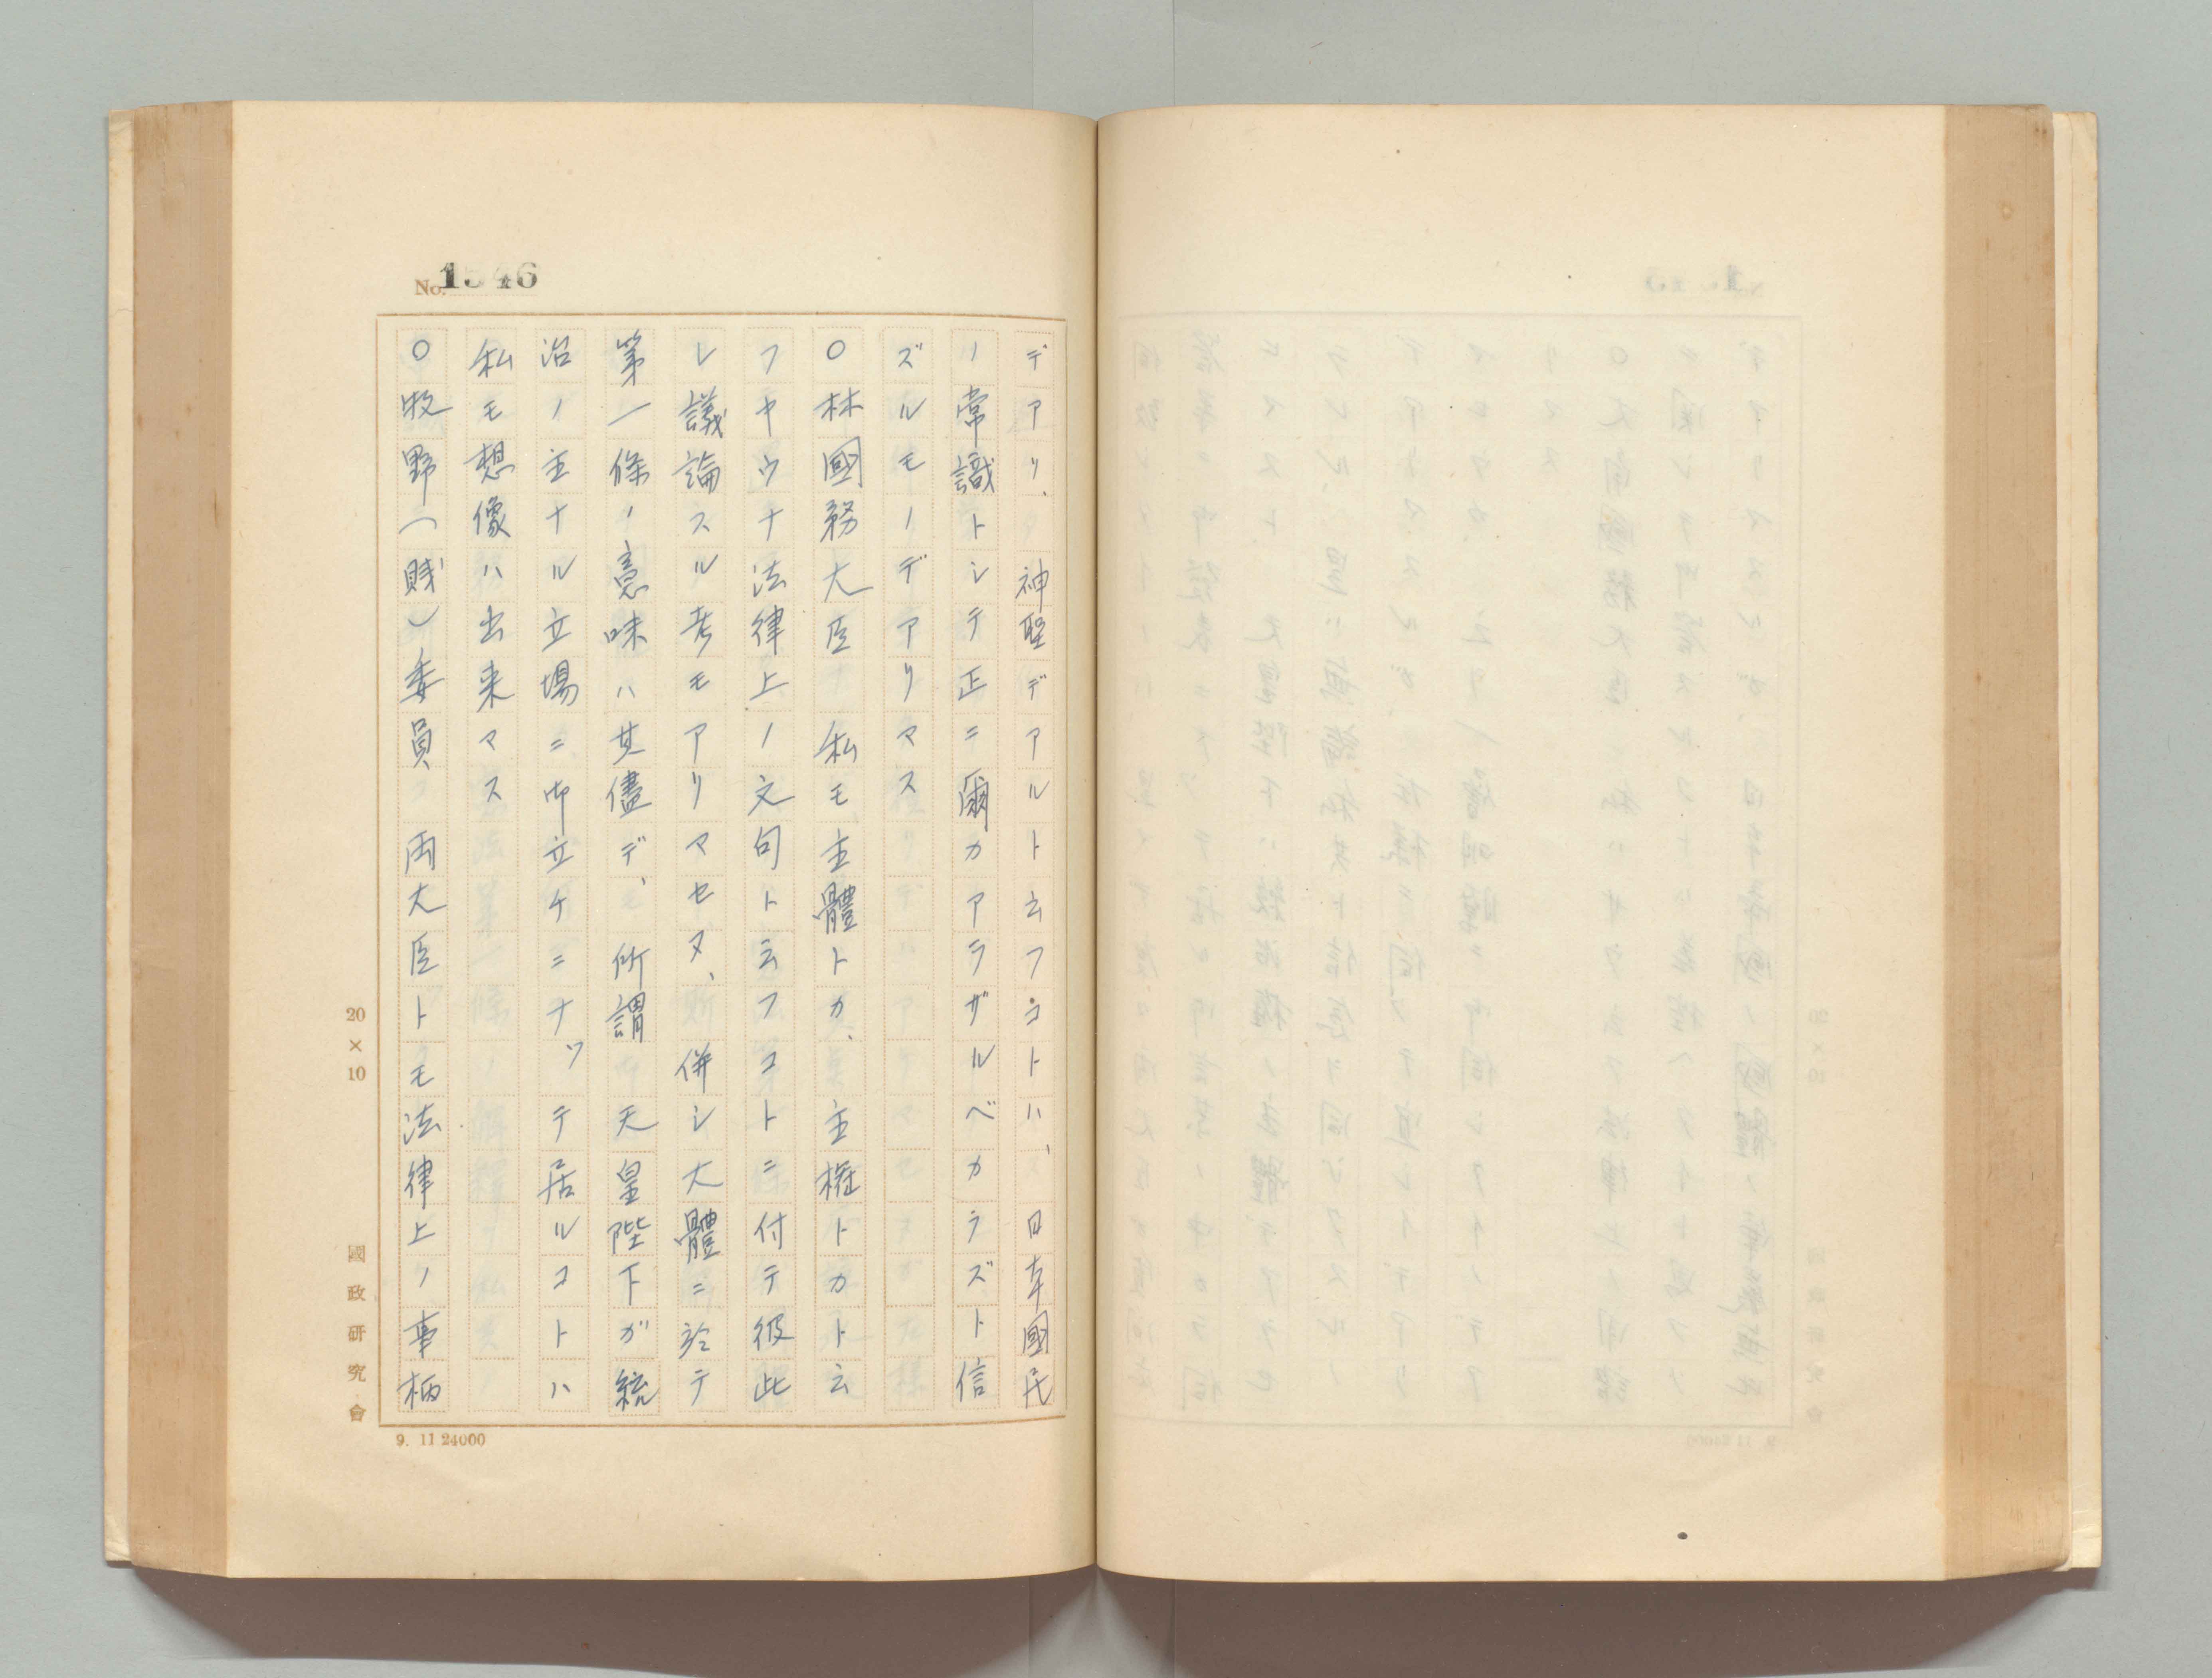 No. 1546
デアリ、神聖デアルト云フコトハ、日本國民
ノ常識トシテ正ニ爾カアラザルベカラズト信
ズルモノデアリマス
〇林國務大臣 私モ主體トカ、主権トカト云
フヤウナ法律上ノ文句ト云フコトニ付テ彼此
レ議論スル考モアリマセヌ、併シ大體ニ於テ
第一條ノ意味ハ其儘デ、所謂天皇陛下ガ統
治ノ主ナル立場ニ御立ケニナッテ居ルコトハ
私モ想像ハ出来マス
〇牧野(賤)委員 両大臣トモ法律上ノ事柄
20×10
國政研究會
9. 11 24000